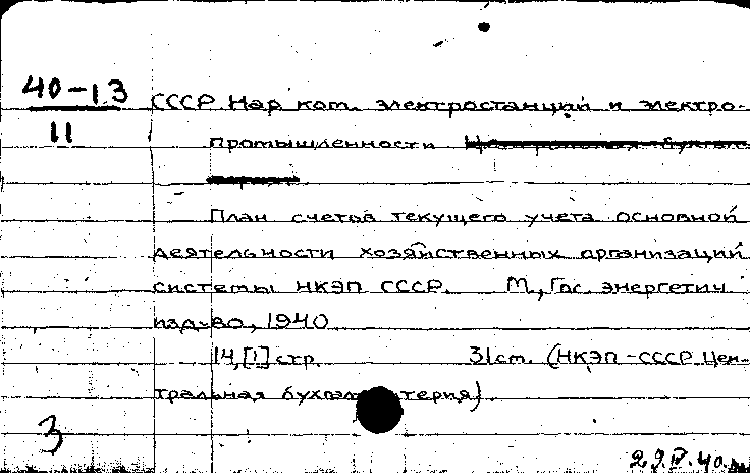 40-13
11
СССР Нар ком. электростанций и электро-
промышленности
План счетов текущего учета основной
деятельности хозяйственных организаций
системы НКЭП СССР. М., Гос. энергетич
изд-во, 1940
14,[1] стр. 31 см. (НКЭП-СССР Цен-
тральная бухгалтерия).
3